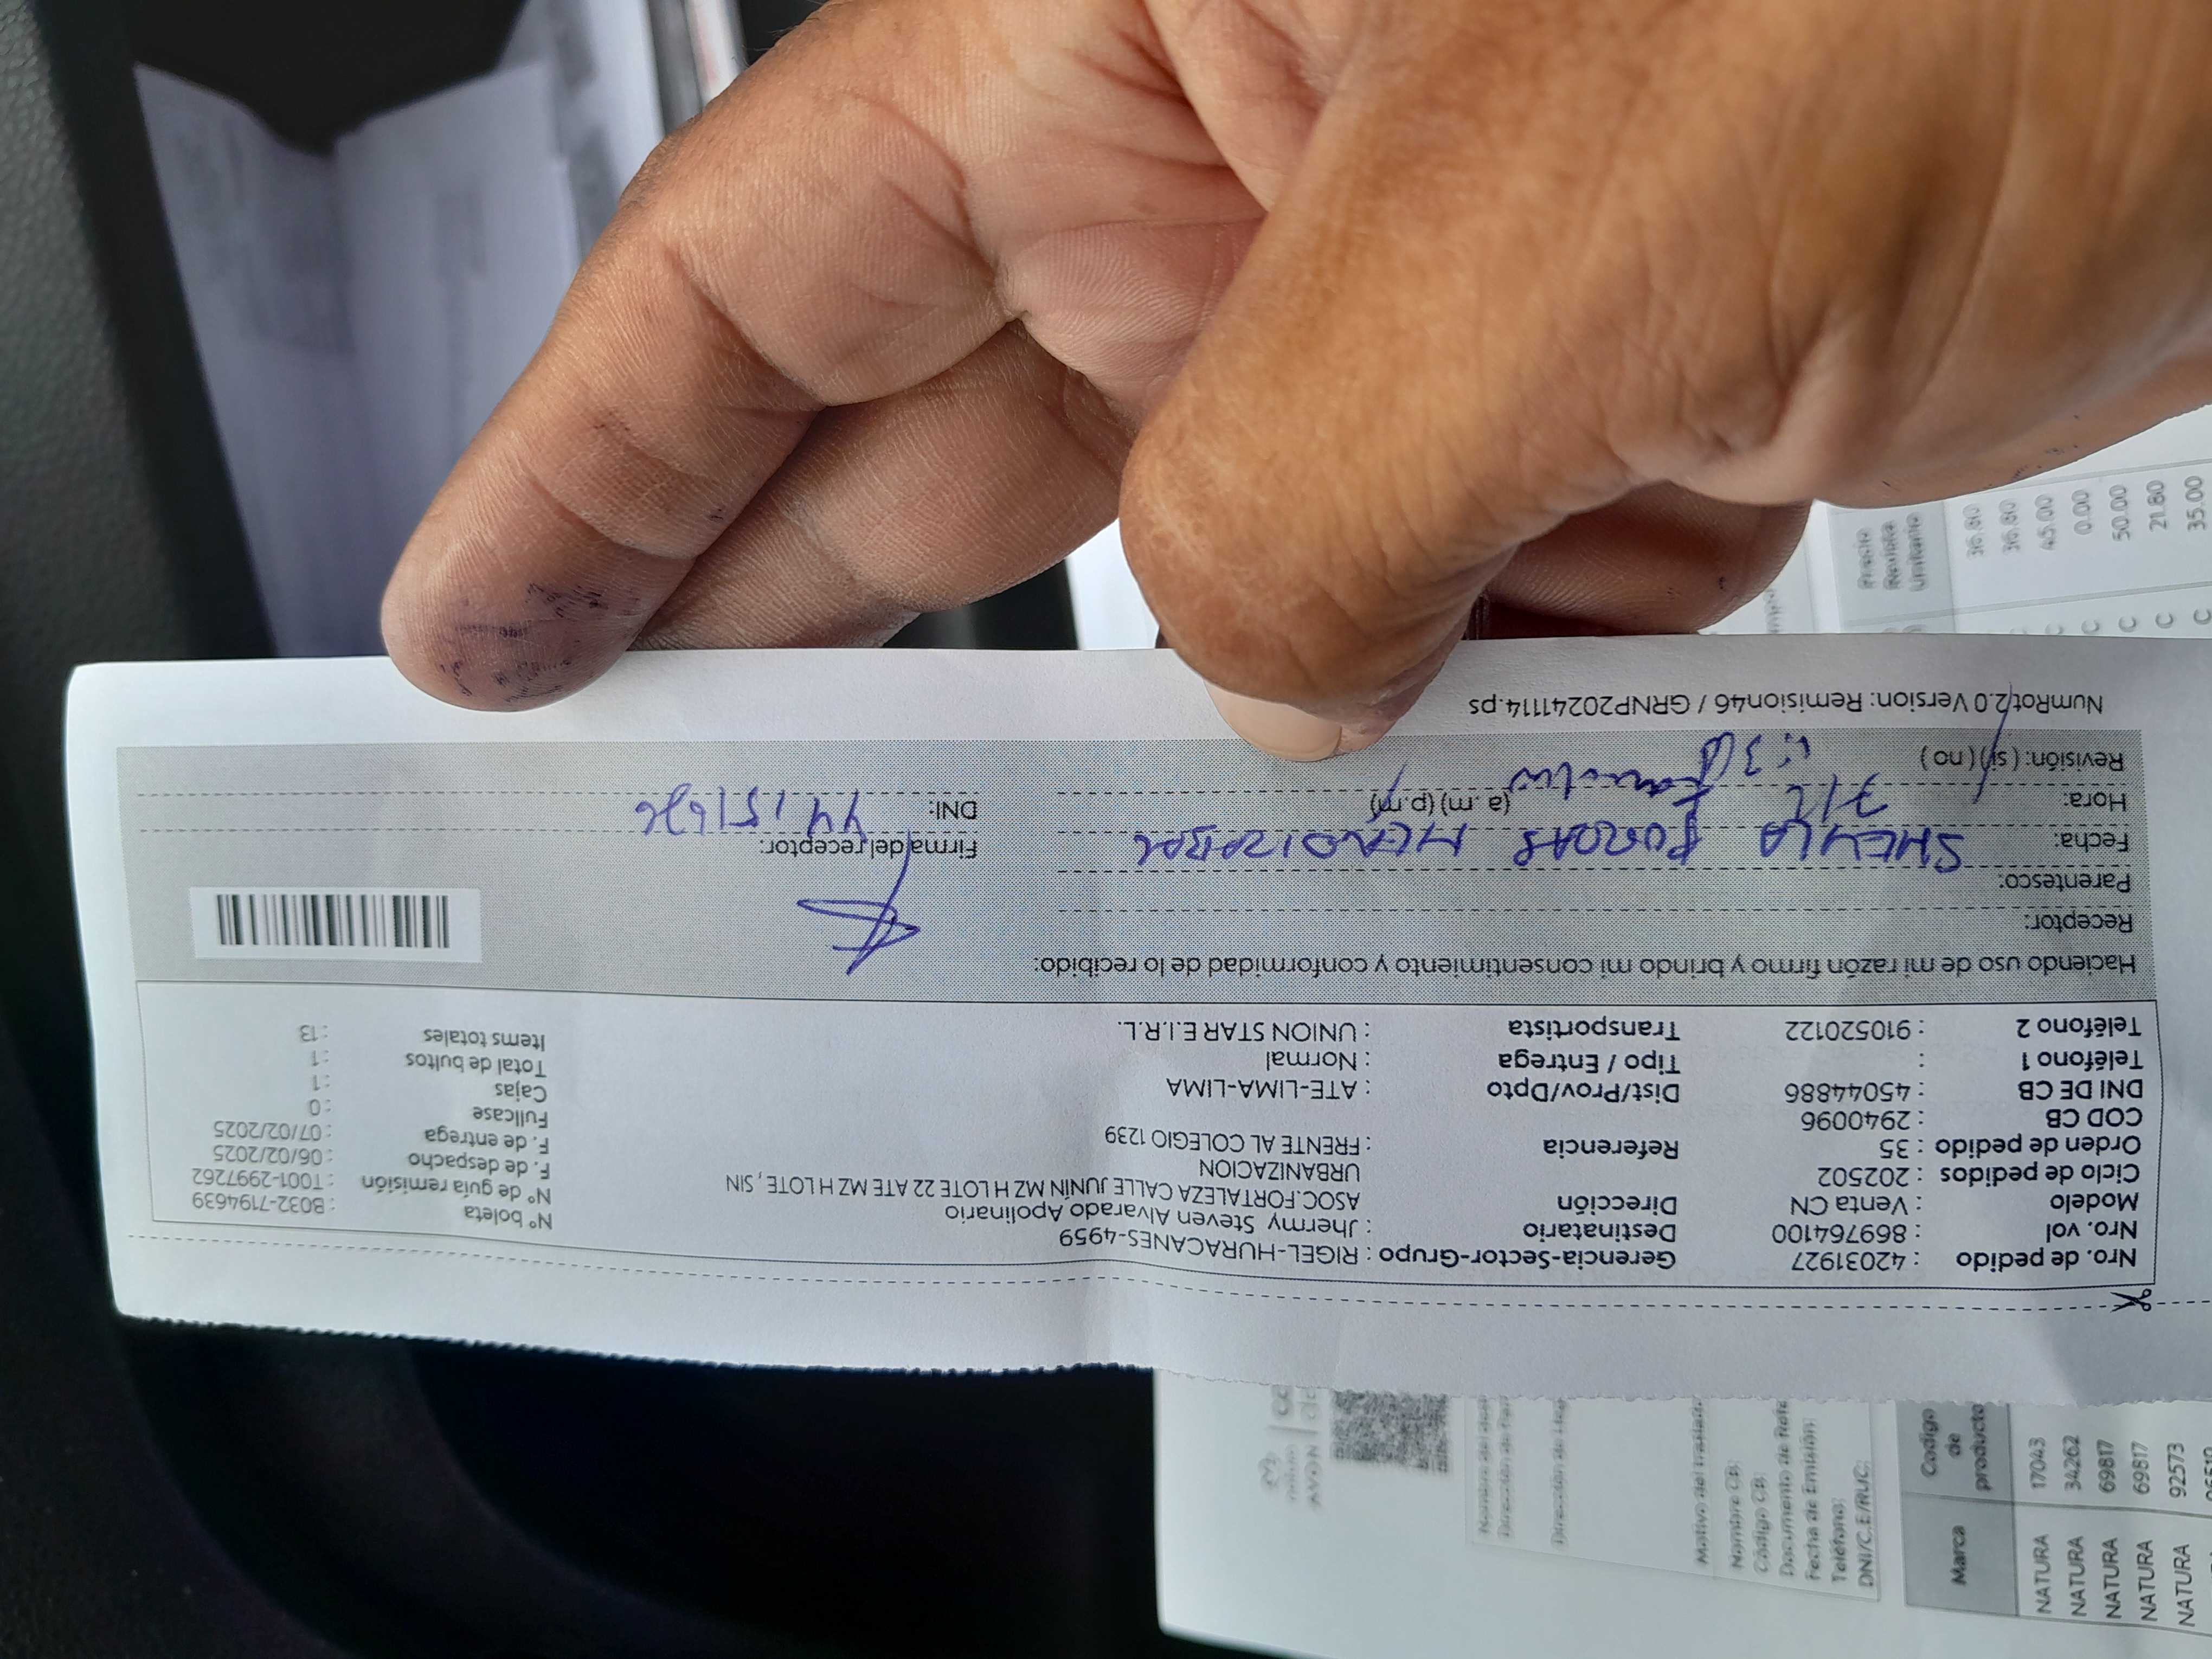 Nro. de pedido : 42031927 Gerencia-Sector-Grupo : RIGEL-HURACANES-4959 Nº boleta : B032-7194639
Nro. vol : 869764100 Destinatario : Jhermy Steven Alvarado Apolinario Nº de guía remisión : T001-2997262
Modelo : Venta CN Dirección : ASOC.FORTALEZA CALLE JUNÍN MZ H LOTE 22 ATE MZ H LOTE , SIN F. de despacho : 06/02/2025
Ciclo de pedidos : 202502 URBANIZACION F. de entrega : 07/02/2025
Orden de pedido : 35 Referencia : FRENTE AL COLEGIO 1239 Fullcase : 0
COD CB : 2940096 Cajas : 1
DNI DE CB : 45044886 Dist/Prov/Dpto : ATE-LIMA-LIMA Total de bultos : 1
Teléfono 1 : Tipo / Entrega : Normal Items totales : 13
Teléfono 2 : 910520122 Transportista : UNION STAR E.I.R.L.
Haciendo uso de mi razón firmo y brindo mi consentimiento y conformidad de lo recibido:
Receptor:
Parentesco:
Fecha: SHEYLA MENDIZABAL Firma del receptor:
Hora: 7/2 (a. m) (p.m) DNI: 44151676
Revisión: ( si ) ( no )
NumRot2.0 Version: Remision46 / GRNP20241114.ps
AVON
Nombre CB:
Código CB:
Fecha de Emisión:
Teléfono:
DNI/C.E/RUC:
Marca Codigo de producto Precio Unitario
NATURA 17043 36.80
NATURA 34262 36.80
NATURA 69817 45.00
NATURA 69817 C 0.00
NATURA 92573 C 50.00
C 21.80
C 35.00